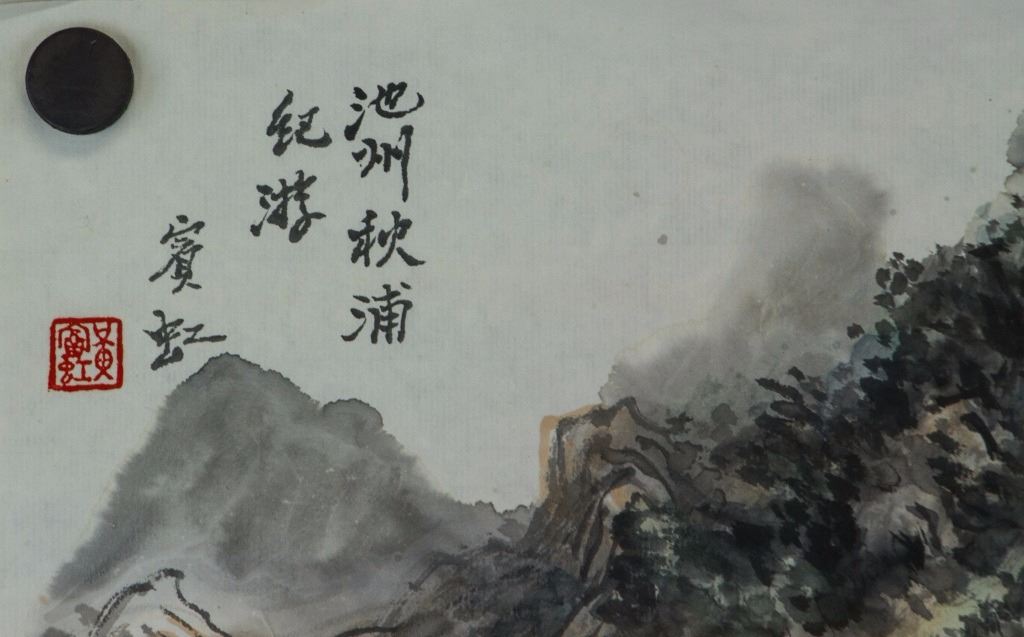 池州秋浦
紀游
賓虹
黃賓虹